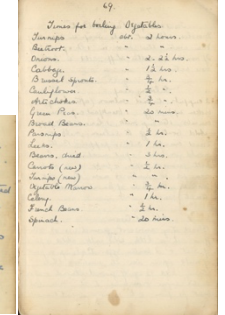 69.
Times for boiling Vegetables.
Turnips abt. 2 hours.
Beetroot. " "
Onions. " 2. 2½ hrs.
Cabbage. " 1½ hrs.
Brussel sprouts. " ¾ hr.
Cauliflower. " "
Artichokes " ¾ "
Green Peas. " 20 mins.
Broad Beans. " "
Parsnips. " hr.
Leeks. " 1 hr.
Beans, dried. " 3 hrs.
Carrots (new) " ½ hr.
Turnips (new) " "
Vegetable Marrow. " ¾ hr.
Celery. " 1 hr.
French Beans " hr.
Spinach. " 20 mins.